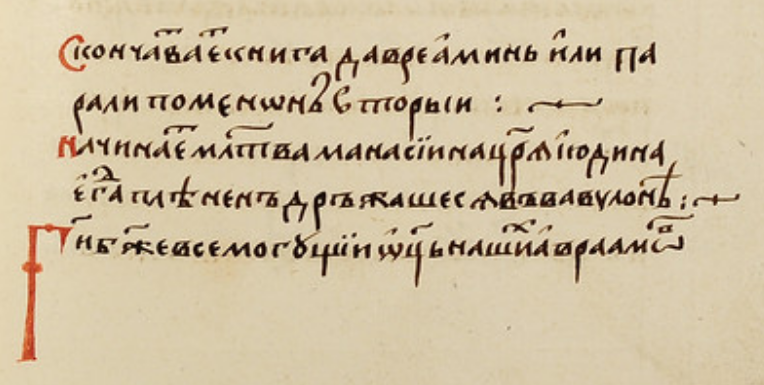 Скончаваетс книга давреаминь или па
рали поменѡнъ вторыи :
Начинает млтва манасїи на црѧ июдина
егда плѣненъ дръжашесѧ въ вавулонѣ :
Ги бже всемогущїи ѡць наших авраамѡв